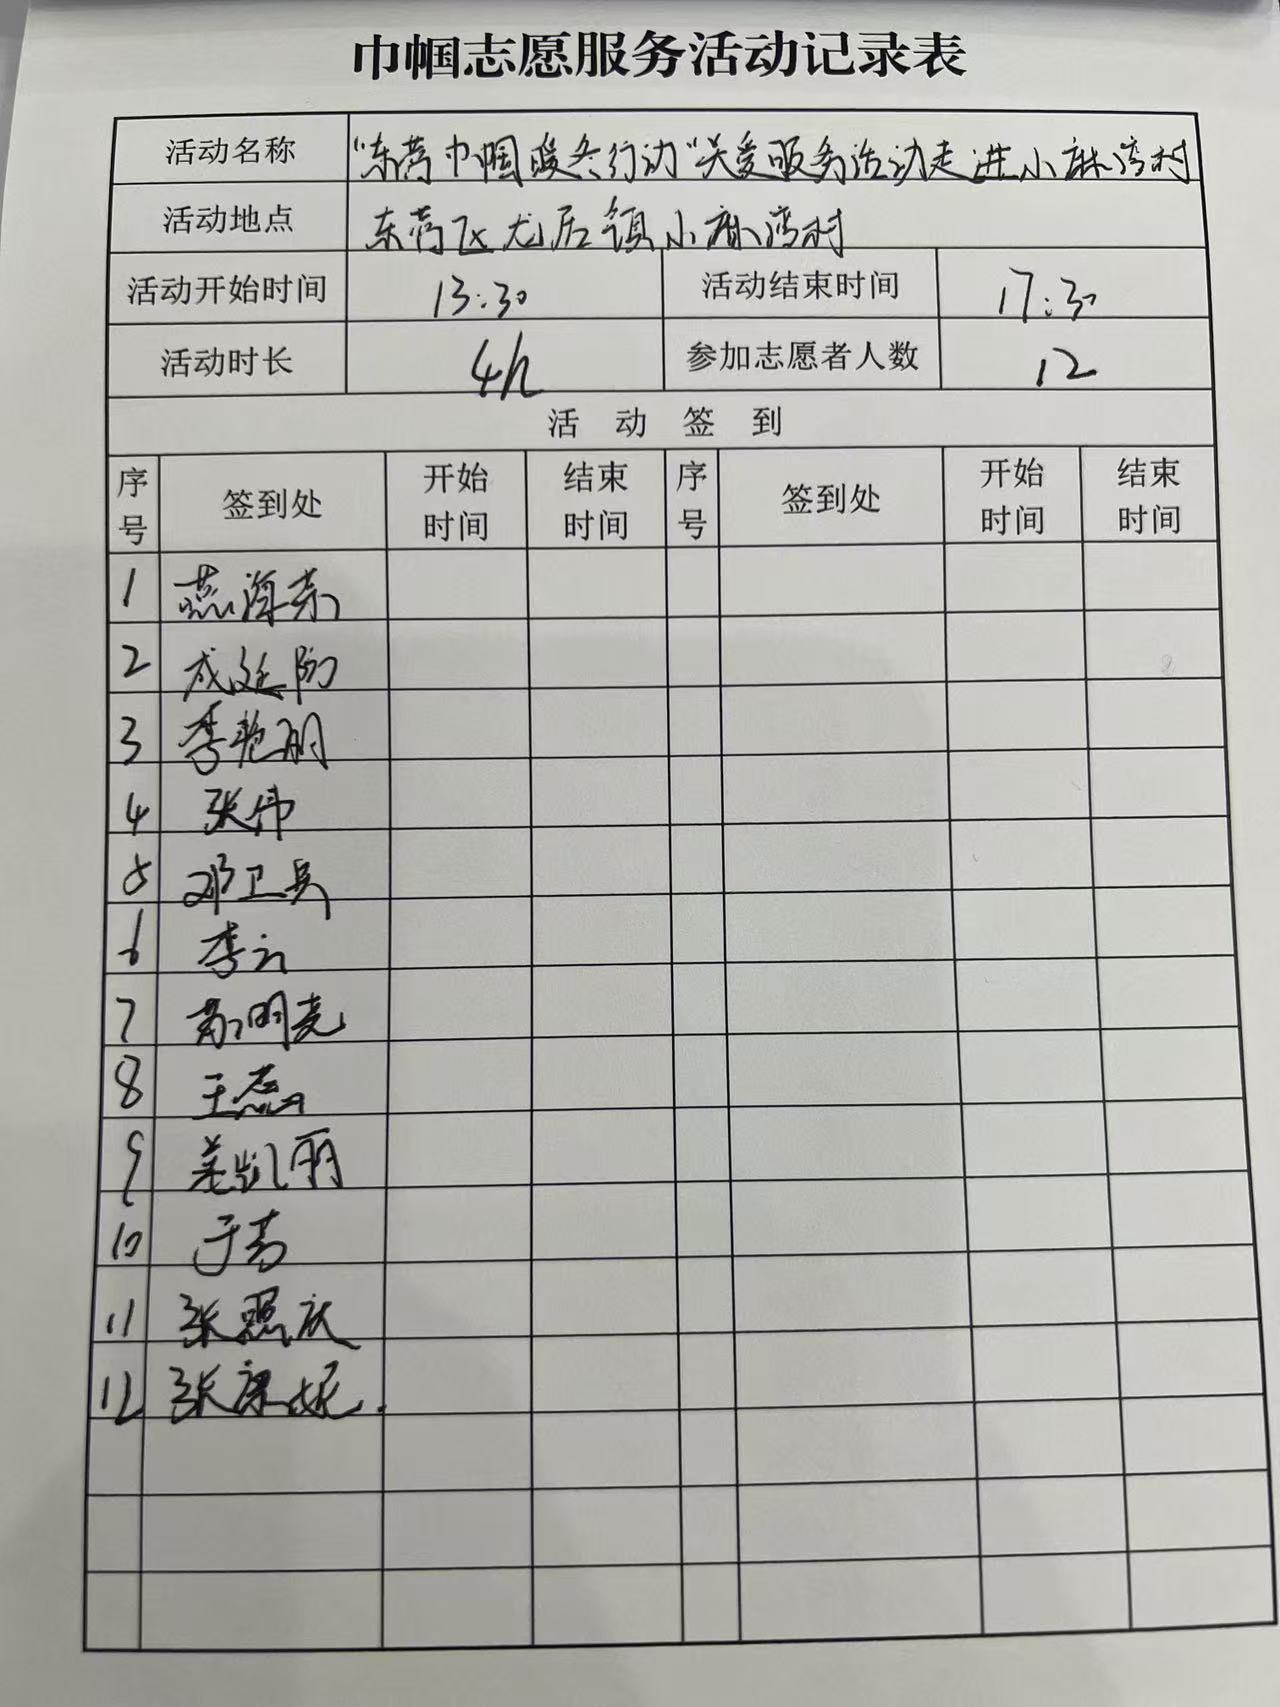 巾帼志愿服务活动记录表
活动名称 "东营巾帼暖冬行动"关爱服务活动走进小麻湾村
活动地点 东营区龙居镇小麻湾村
活动开始时间 13:30 活动结束时间 17:30
活动时长 4h 参加志愿者人数 12
活动签到
序号 签到处 开始时间 结束时间 序号 签到处 开始时间 结束时间
1 燕海荣
2 成廷
3 李艳丽
4 张伟
5 邓卫兵
6 李云
7 明亮
8 王磊
9 姜凯丽
10 于芳
11 张照庆
12 张康妮.